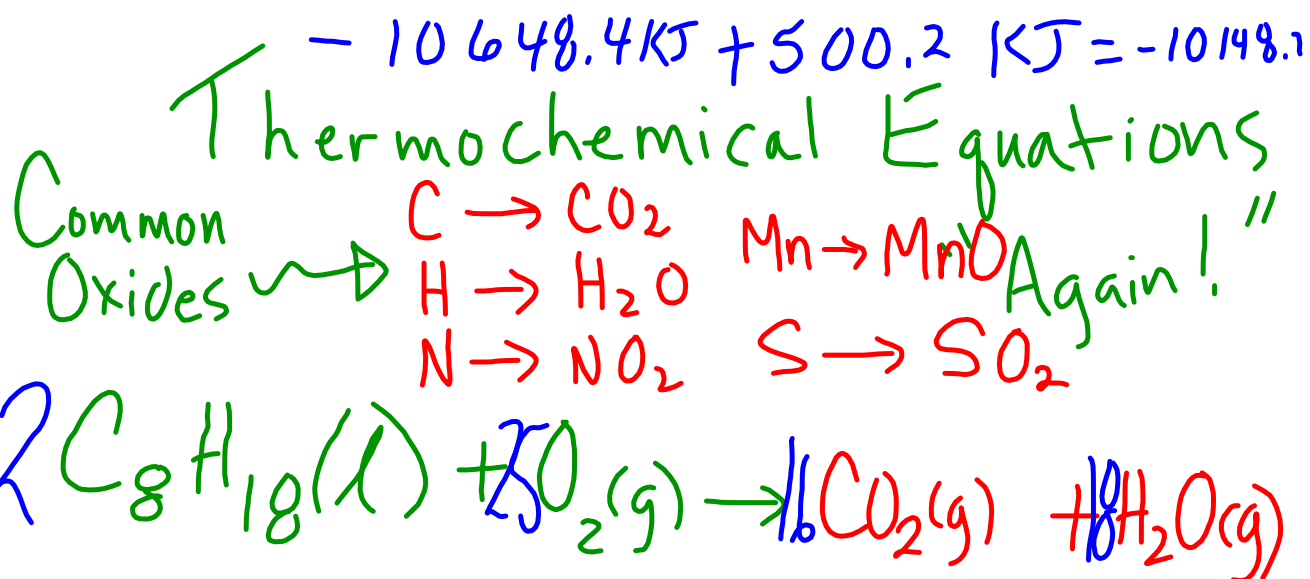 - 10648.4KJ + 500.2 KJ = -10148.2
Thermochemical Equations
Common Oxides → C → CO₂
H → H₂O
N → NO₂
Mn → MnO
S → SO₂
"Again!"
2C₈H₁₈(l) + 25O₂(g) → 16CO₂(g) + 18H₂O(g)